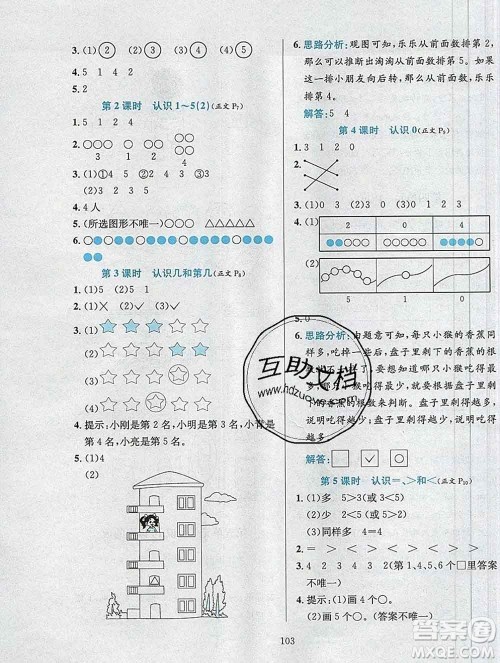 3. (1)② (2)③ (3)① (4)④ (5)⑤
4. 5 1 4 2
5. 2
第2课时 认识1~5(2)(正文P₇)
1. 5 3 1 2 4
2.
3 1 4
3. (1)①③④ (2)② ③
4. 4人
5. (所选图形不唯一) ○○○ △△△△△
6.
第3课时 认识几和第几(正文P₈)
1. (1)5 (2)5 1
2. (1)× (2)✓ (3)✓
3. (1)
(2)
(3)
4. 提示:小刚是第2名,小明是第3名,小
第4名,小亮是第5名。
5. (1)4
(2)
6. 思路分析:观图可知,乐乐从前面数排第2,
那么可以推断出淘淘从前面数排第5。如
果这一排小朋友向后转,那么从前面数淘淘
排第4。
解答:5 4
第4课时 认识0(正文P₉)
1. 3 1 2 0
2.
3. (1)0 (2)1 3 4
4. (1) 2 0 4
(2)
5 1 0
5. 0
6. 思路分析:由题意可知,小猴的香蕉同
样多,吃掉一些后,盘子里剩下的香蕉的根
最少,就看盘子里剩
下的香蕉的根数。盘子里剩得越
多,吃得越少;盘子里剩得越少,吃得
越多。
解答:□ ✓ ○
第5课时 认识=、>和<(正文P₁₀)
1. (1)多 5>3(或3<5)
(2)少 2<5(或5>2)
(3)同样多 4=4
2. = > < > < >
3. 1 3 2 4 4 (第1、4、5、6个□里答案
不唯一)
4. 提示:(1)画4个○。
(2)画5个○。(答案不唯一)
103
互助文档
www.hdzuowen.com
答案圈
MXQE.COM